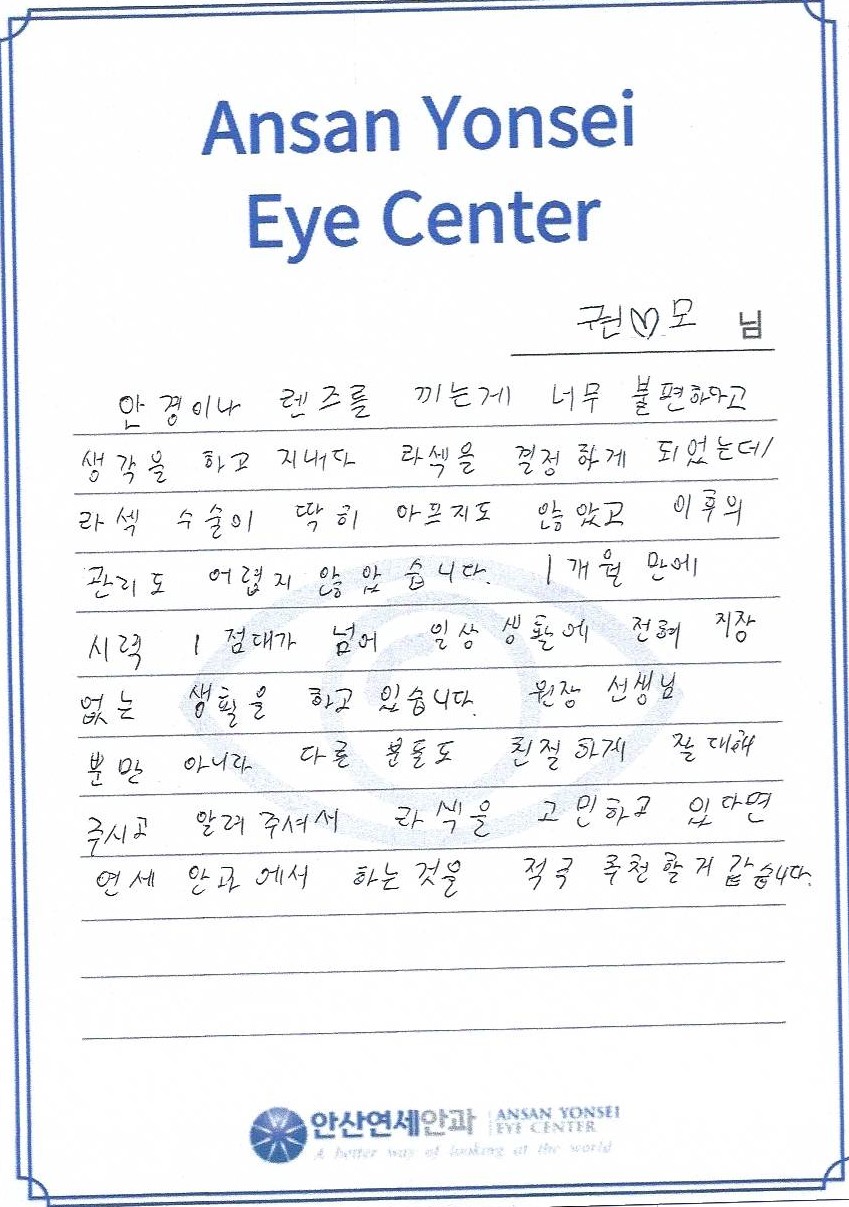 Ansan Yonsei
Eye Center
권♡모 님
안경이나 렌즈를 끼는게 너무 불편하다고
생각을 하고 지내다 라섹을 결정 하게 되었는데/
라섹 수술이 딱히 아프지도 않았고 이후의
관리도 어렵지 않았습니다. 1개월 만에
시력 1점대가 넘어 일상 생활에 전혀 지장
없는 생활을 하고 있습니다. 원장 선생님
분만 아니라 다른 분들도 친절하게 잘 대해
주시고 알려주셔서 라섹을 고민하고 있다면
연세 안과에서 하는것을 적극 추천할거 같습니다.
안산연세안과 ANSAN YONSEI
EYE CENTER
A better way of looking at the world